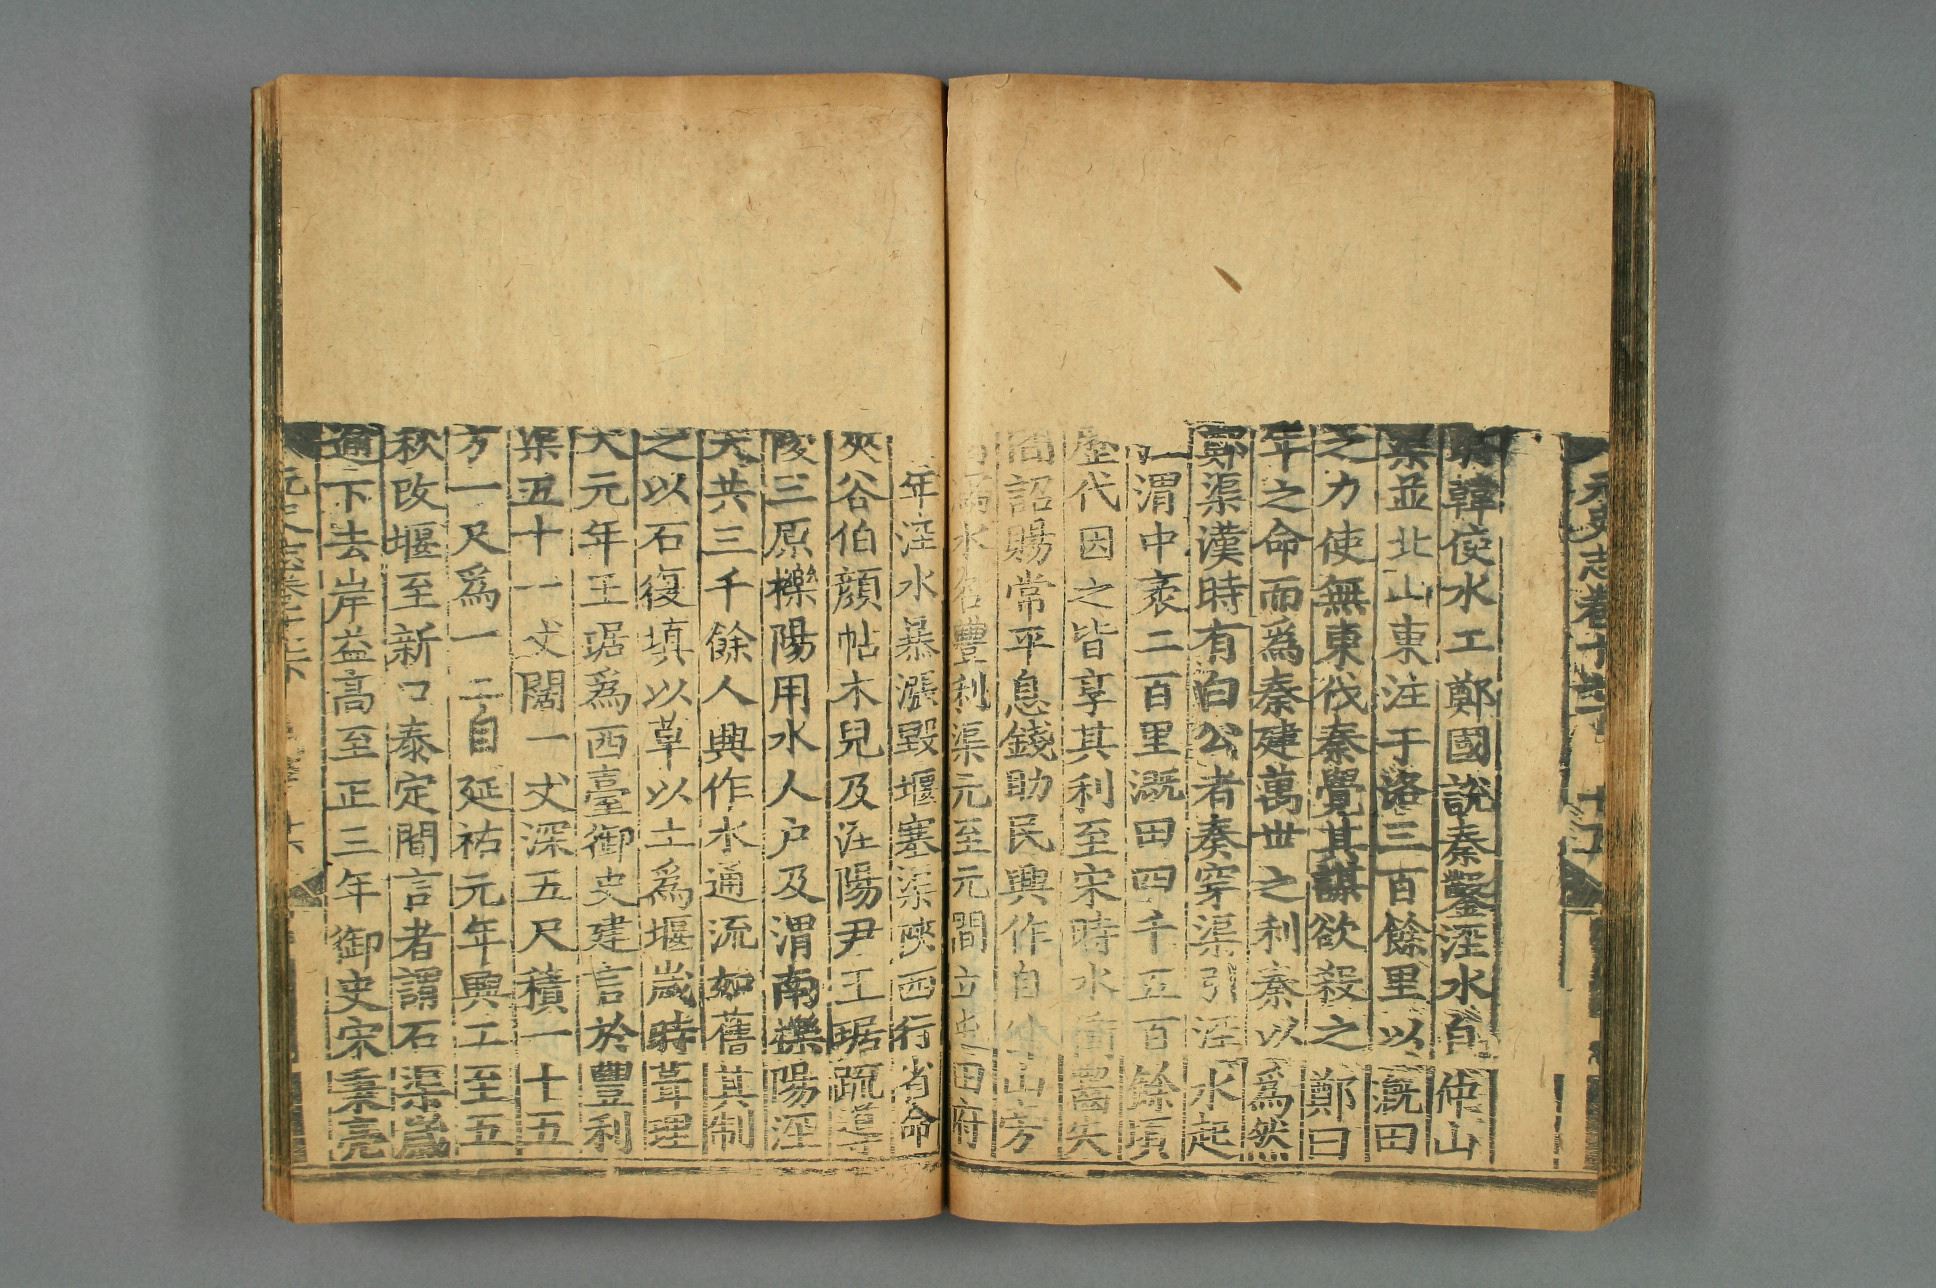 元史志卷十七下 十五
韓使水工鄭國說秦鑿涇水自仲山
渠並北山東注于洛三百餘里以溉田
之力使無東伐秦覺其謀欲殺之鄭曰
年之命而爲秦建萬世之利秦以爲然
鄭渠漢時有白公者奏穿渠引涇水起
渭中袤二百里溉田四千五百餘頃
歷代因之皆享其利至宋時水衝齧失
詔賜常平息錢助民興作自仲山旁
水名豐利渠元至元間立屯田府
年涇水暴漲毀堰塞渠陝西行省命
夾谷伯顏帖木兒及涇陽尹王琚疏導
陵三原櫟陽用水人户及渭南櫟陽涇
共三千餘人興作水通流如舊其制
之以石復填以草以土爲堰歲時葺理
大元年王琚爲西臺御史建言於豐利
渠五十一丈闊一丈深五尺積一十五
方一尺爲一工自延祐元年興工至五
秋改堰至新口泰定間言者謂石渠歲
通下去岸益高至正三年御史宋秉亮
元史志卷十七下 十六